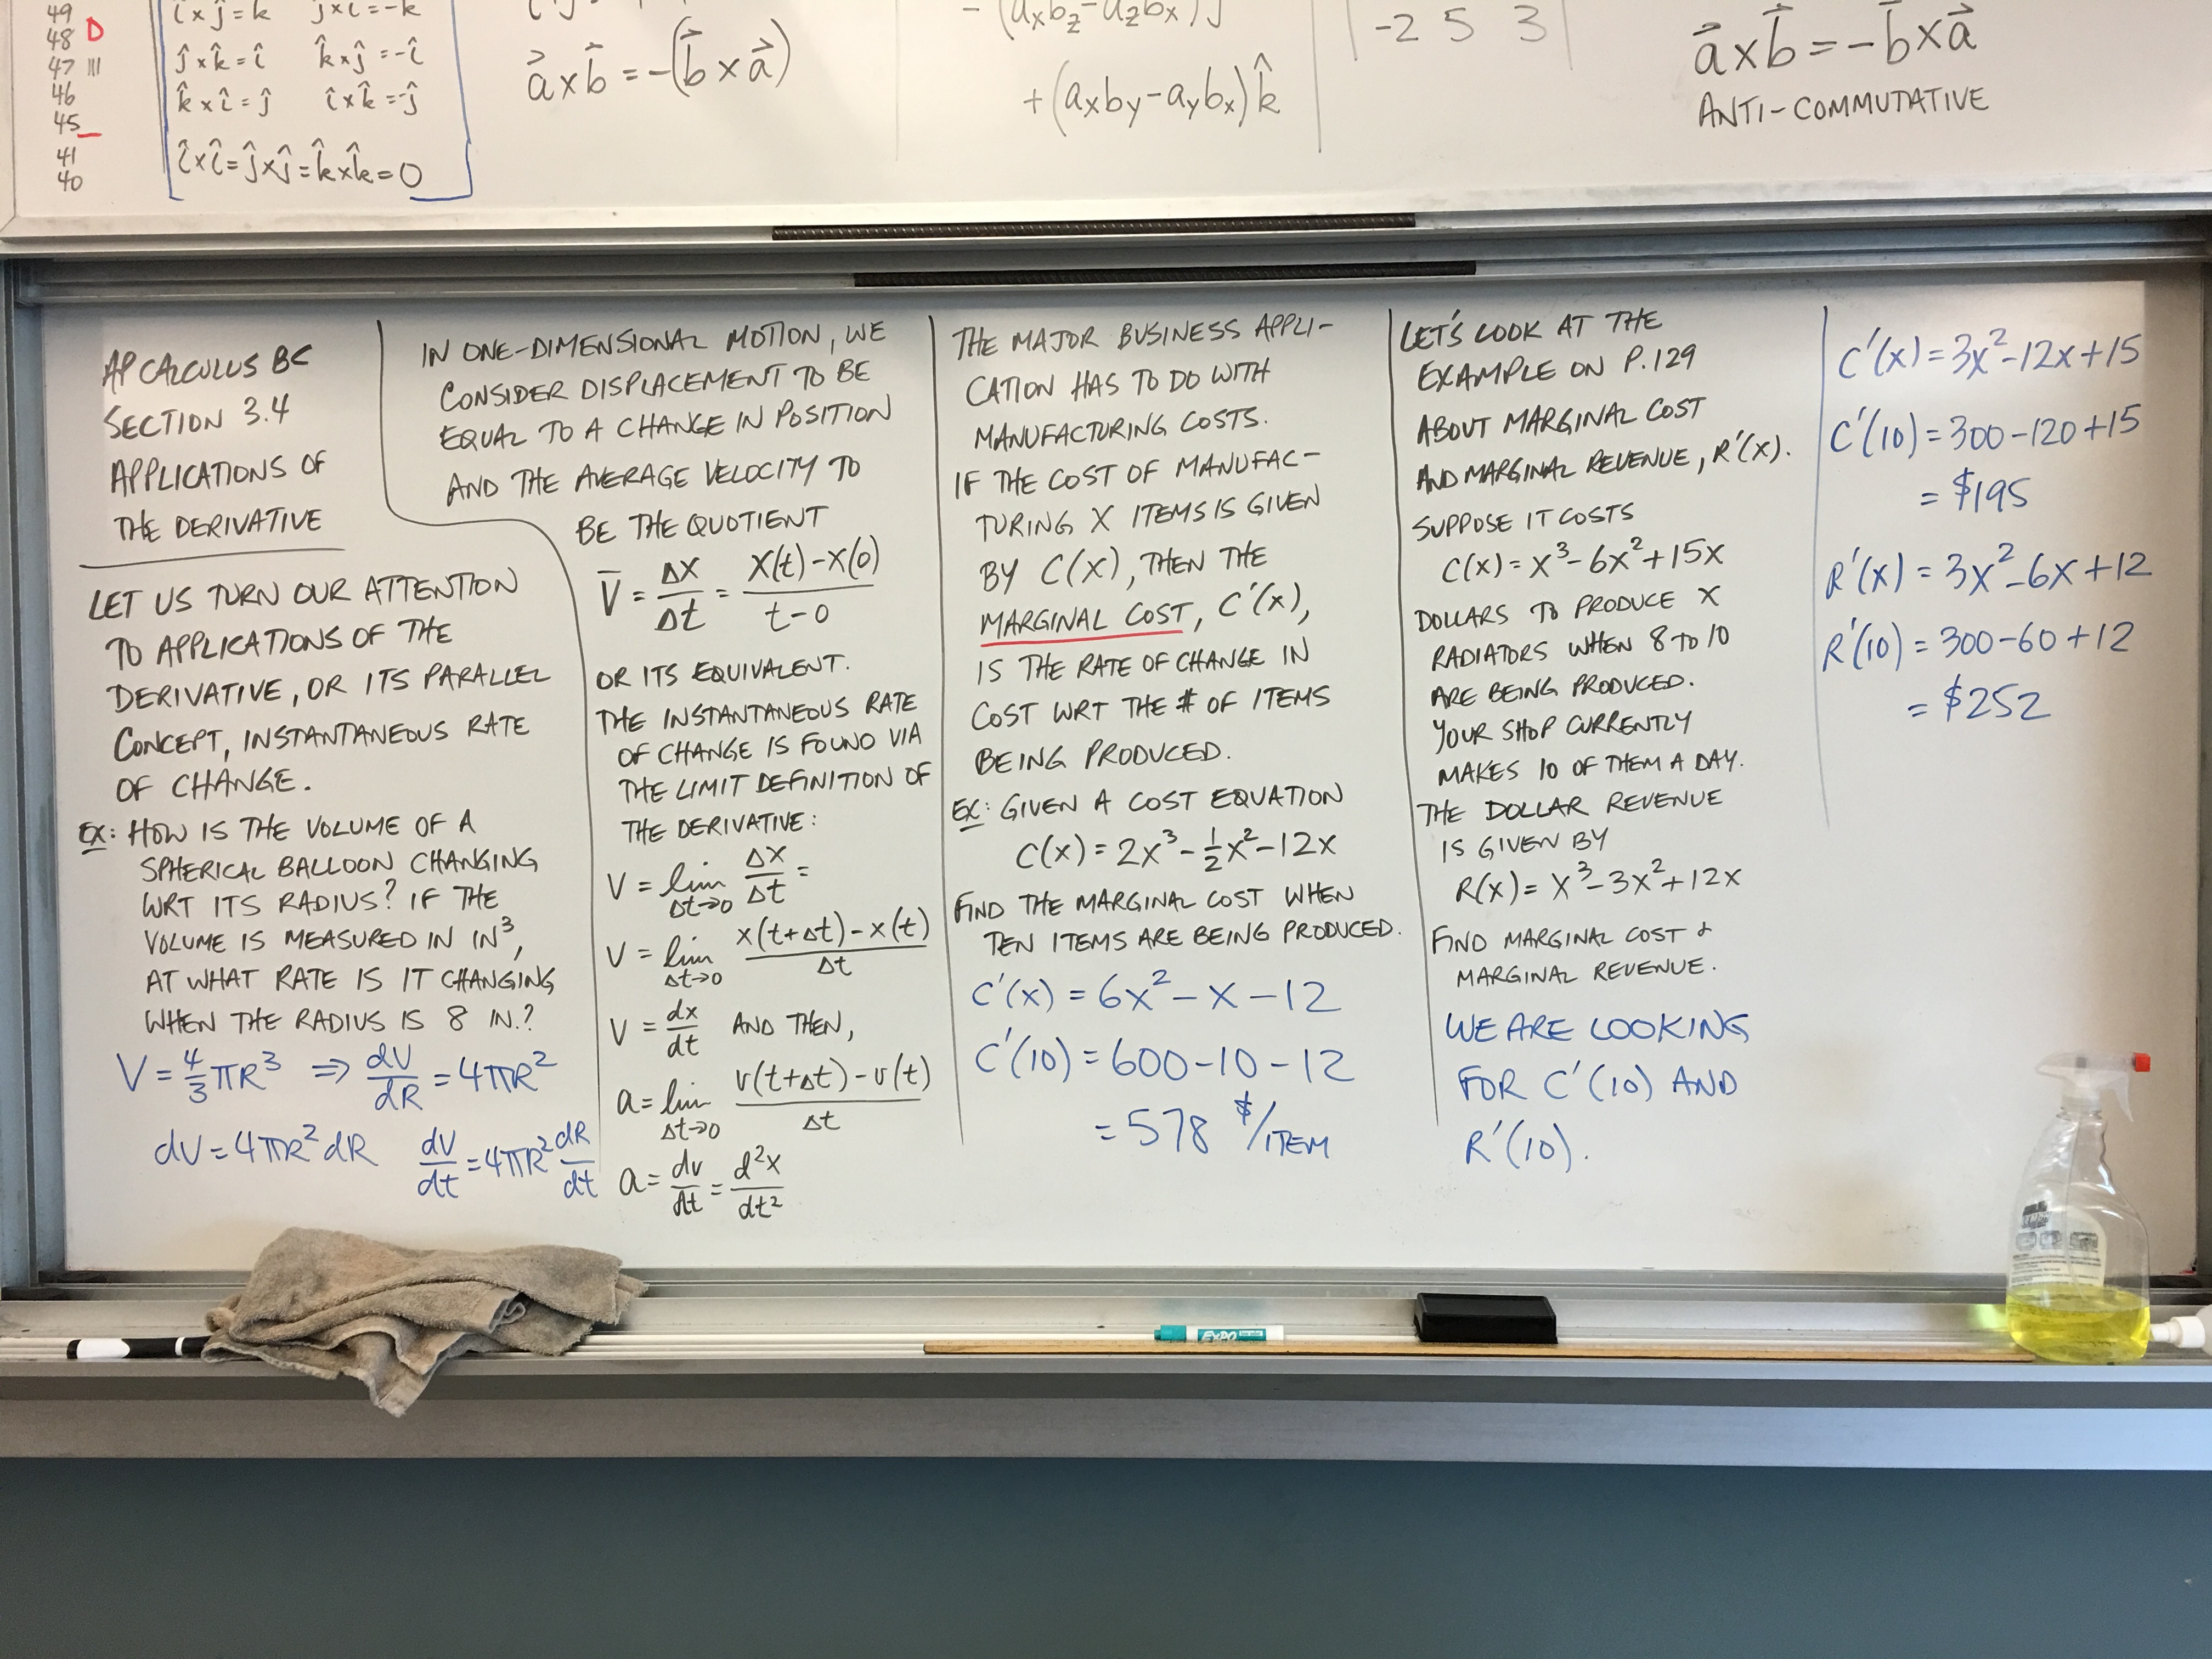 49
48 D
47 |||
46
45
41
40
î × ĵ = k̂   ĵ × î = -k̂
ĵ × k̂ = î   k̂ × ĵ = -î
k̂ × î = ĵ   î × k̂ = -ĵ
î × î = ĵ × ĵ = k̂ × k̂ = 0
a⃗ × b⃗ = -(b⃗ × a⃗)
- (aₓb_z - a_zbₓ) ĵ
+ (aₓb_y - a_ybₓ) k̂
-2 5 3
a⃗ × b⃗ = - b⃗ × a⃗
ANTI-COMMUTATIVE
AP CALCULUS BC
SECTION 3.4
APPLICATIONS OF
THE DERIVATIVE
LET US TURN OUR ATTENTION
TO APPLICATIONS OF THE
DERIVATIVE, OR ITS PARALLEL
CONCEPT, INSTANTANEOUS RATE
OF CHANGE.
EX: HOW IS THE VOLUME OF A
SPHERICAL BALLOON CHANGING
WRT ITS RADIUS? IF THE
VOLUME IS MEASURED IN IN³,
AT WHAT RATE IS IT CHANGING
WHEN THE RADIUS IS 8 IN.?
V = 4/3 πR³ ⇒ dV/dR = 4πR²
dV = 4πR² dR   dV/dt = 4πR² dR/dt
IN ONE-DIMENSIONAL MOTION, WE
CONSIDER DISPLACEMENT TO BE
EQUAL TO A CHANGE IN POSITION
AND THE AVERAGE VELOCITY TO
BE THE QUOTIENT
V̄ = Δx/Δt = (x(t) - x(0))/(t - 0)
OR ITS EQUIVALENT.
THE INSTANTANEOUS RATE
OF CHANGE IS FOUND VIA
THE LIMIT DEFINITION OF
THE DERIVATIVE:
V = lim Δt→0 Δx/Δt =
V = lim Δt→0 (x(t+Δt) - x(t))/Δt
V = dx/dt AND THEN,
a = lim Δt→0 (v(t+Δt) - v(t))/Δt
a = dv/dt = d²x/dt²
THE MAJOR BUSINESS APPLI-
CATION HAS TO DO WITH
MANUFACTURING COSTS.
IF THE COST OF MANUFAC-
TURING X ITEMS IS GIVEN
BY C(X), THEN THE
MARGINAL COST, C'(X),
IS THE RATE OF CHANGE IN
COST WRT THE # OF ITEMS
BEING PRODUCED.
EX: GIVEN A COST EQUATION
C(x) = 2x³ - ½x² - 12x
FIND THE MARGINAL COST WHEN
TEN ITEMS ARE BEING PRODUCED.
C'(x) = 6x² - x - 12
C'(10) = 600 - 10 - 12
= 578 $/ITEM
LET'S LOOK AT THE
EXAMPLE ON P.129
ABOUT MARGINAL COST
AND MARGINAL REVENUE, R'(X).
SUPPOSE IT COSTS
C(x) = x³ - 6x² + 15x
DOLLARS TO PRODUCE X
RADIATORS WHEN 8 TO 10
ARE BEING PRODUCED.
YOUR SHOP CURRENTLY
MAKES 10 OF THEM A DAY.
THE DOLLAR REVENUE
IS GIVEN BY
R(x) = x³ - 3x² + 12x
FIND MARGINAL COST &
MARGINAL REVENUE.
WE ARE LOOKING
FOR C'(10) AND
R'(10).
C'(x) = 3x² - 12x + 15
C'(10) = 300 - 120 + 15
= $195
R'(x) = 3x² - 6x + 12
R'(10) = 300 - 60 + 12
= $252
EXPO